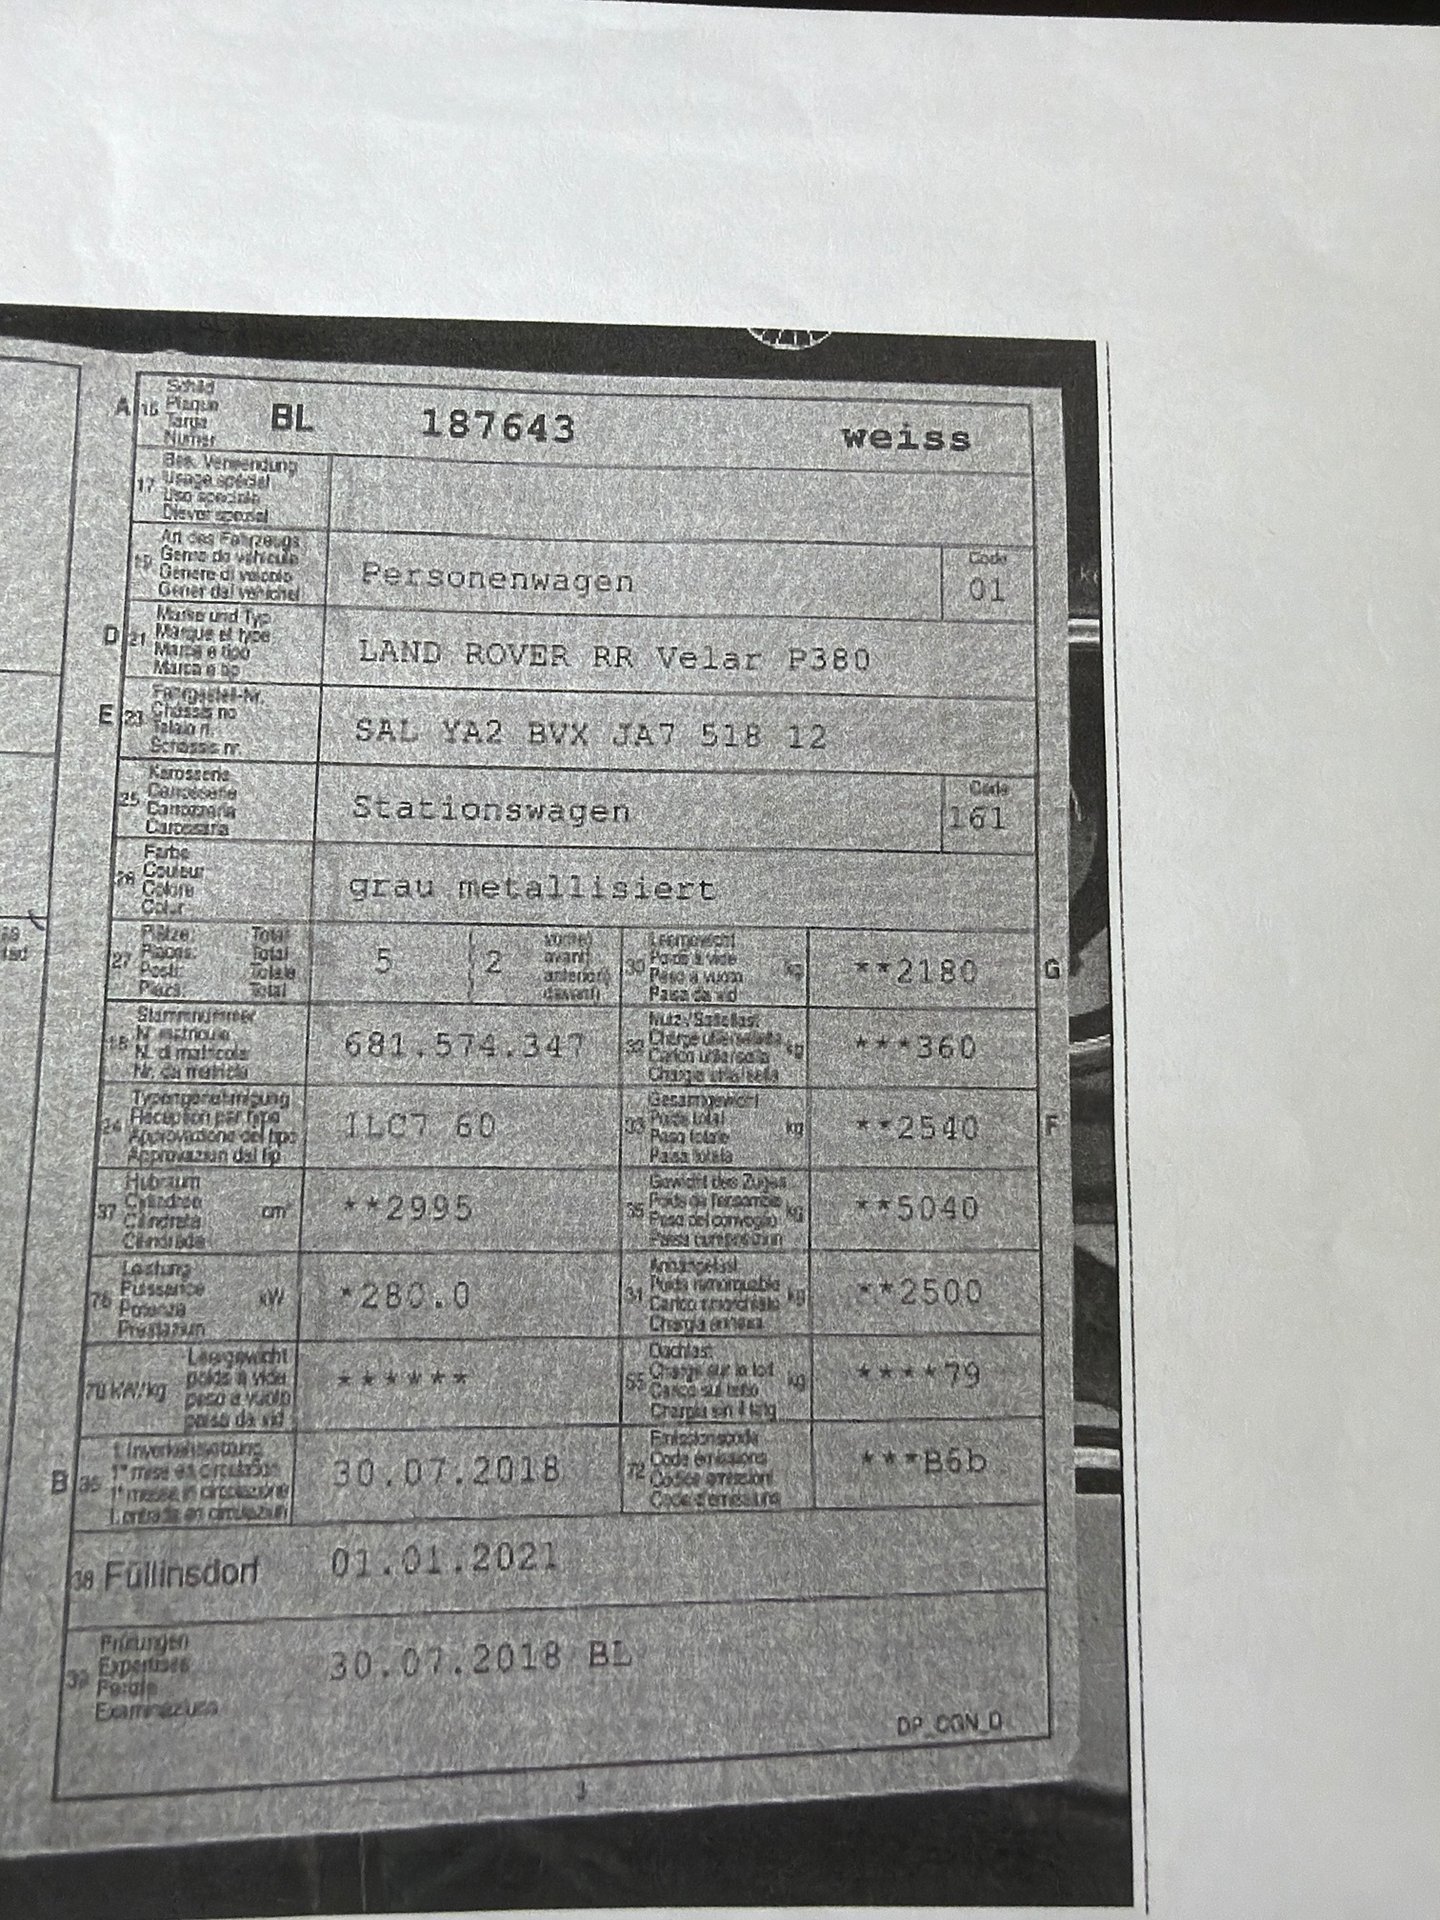 A 15 Schild BL 187643 weiss
Plaque
Targa
Numer
17 Bes. Verwendung
Usage spécial
Uso speciale
Diever spezial
19 Art des Fahrzeugs Personenwagen Code 01
Genre de véhicule
Genere di veicolo
Gener dal vehichel
D 21 Marke und Typ LAND ROVER RR Velar P380
Marque et type
Marca e tipo
Marca e tip
E 23 Fahrgestell-Nr. SAL YA2 BVX JA7 518 12
Châssis no
Telaio n.
Schassis nr.
25 Karosserie Stationswagen Code 161
Carrosserie
Carrozzeria
Carossaria
26 Farbe grau metallisiert
Couleur
Colore
Colur
27 Plätze: Total 5 2 vorne) 30 Leergewicht kg **2180 G
Places: Total avant) Poids à vide
Posti: Totale anteriori) Peso a vuoto
Plazs: Total davant) Paisa da vid
18 Stammnummer 681.574.347 32 Nutz-/Sattellast kg ***360
N° matricule Charge utile/sellette
N. di matricola Carico utile/sella
Nr. da matricla Chargia utila/sella
24 Typengenehmigung 1LC7 60 33 Gesamtgewicht kg **2540 F
Réception par type Poids total
Approvazione del tipo Peso totale
Approvaziun dal tip Paisa totala
37 Hubraum cm³ **2995 35 Gewicht des Zuges kg **5040
Cylindrée Poids de l'ensemble
Cilindrata Peso del convoglio
Cilindrada Paisa cumposiziun
76 Leistung kW *280.0 31 Anhängelast kg **2500
Puissance Poids remorquable
Potenza Carico rimorchiato
Prestaziun Chargia annexa
78 kW/kg Leergewicht ****** 55 Dachlast kg ****79
poids à vide Charge sur le toit
peso a vuoto Carico sul tetto
paisa da vid Chargia sin il tetg
B 36 1. Inverkehrsetzung 30.07.2018 72 Emissionscode ***B6b
1re mise en circulation Code émissions
1a messa in circolazione Codice emissioni
1. entrada en circulaziun Code d'emissiuns
38 Füllinsdorf 01.01.2021
39 Prüfungen 30.07.2018 BL
Expertises
Perizie
Examinaziuns
DP_CGN_D